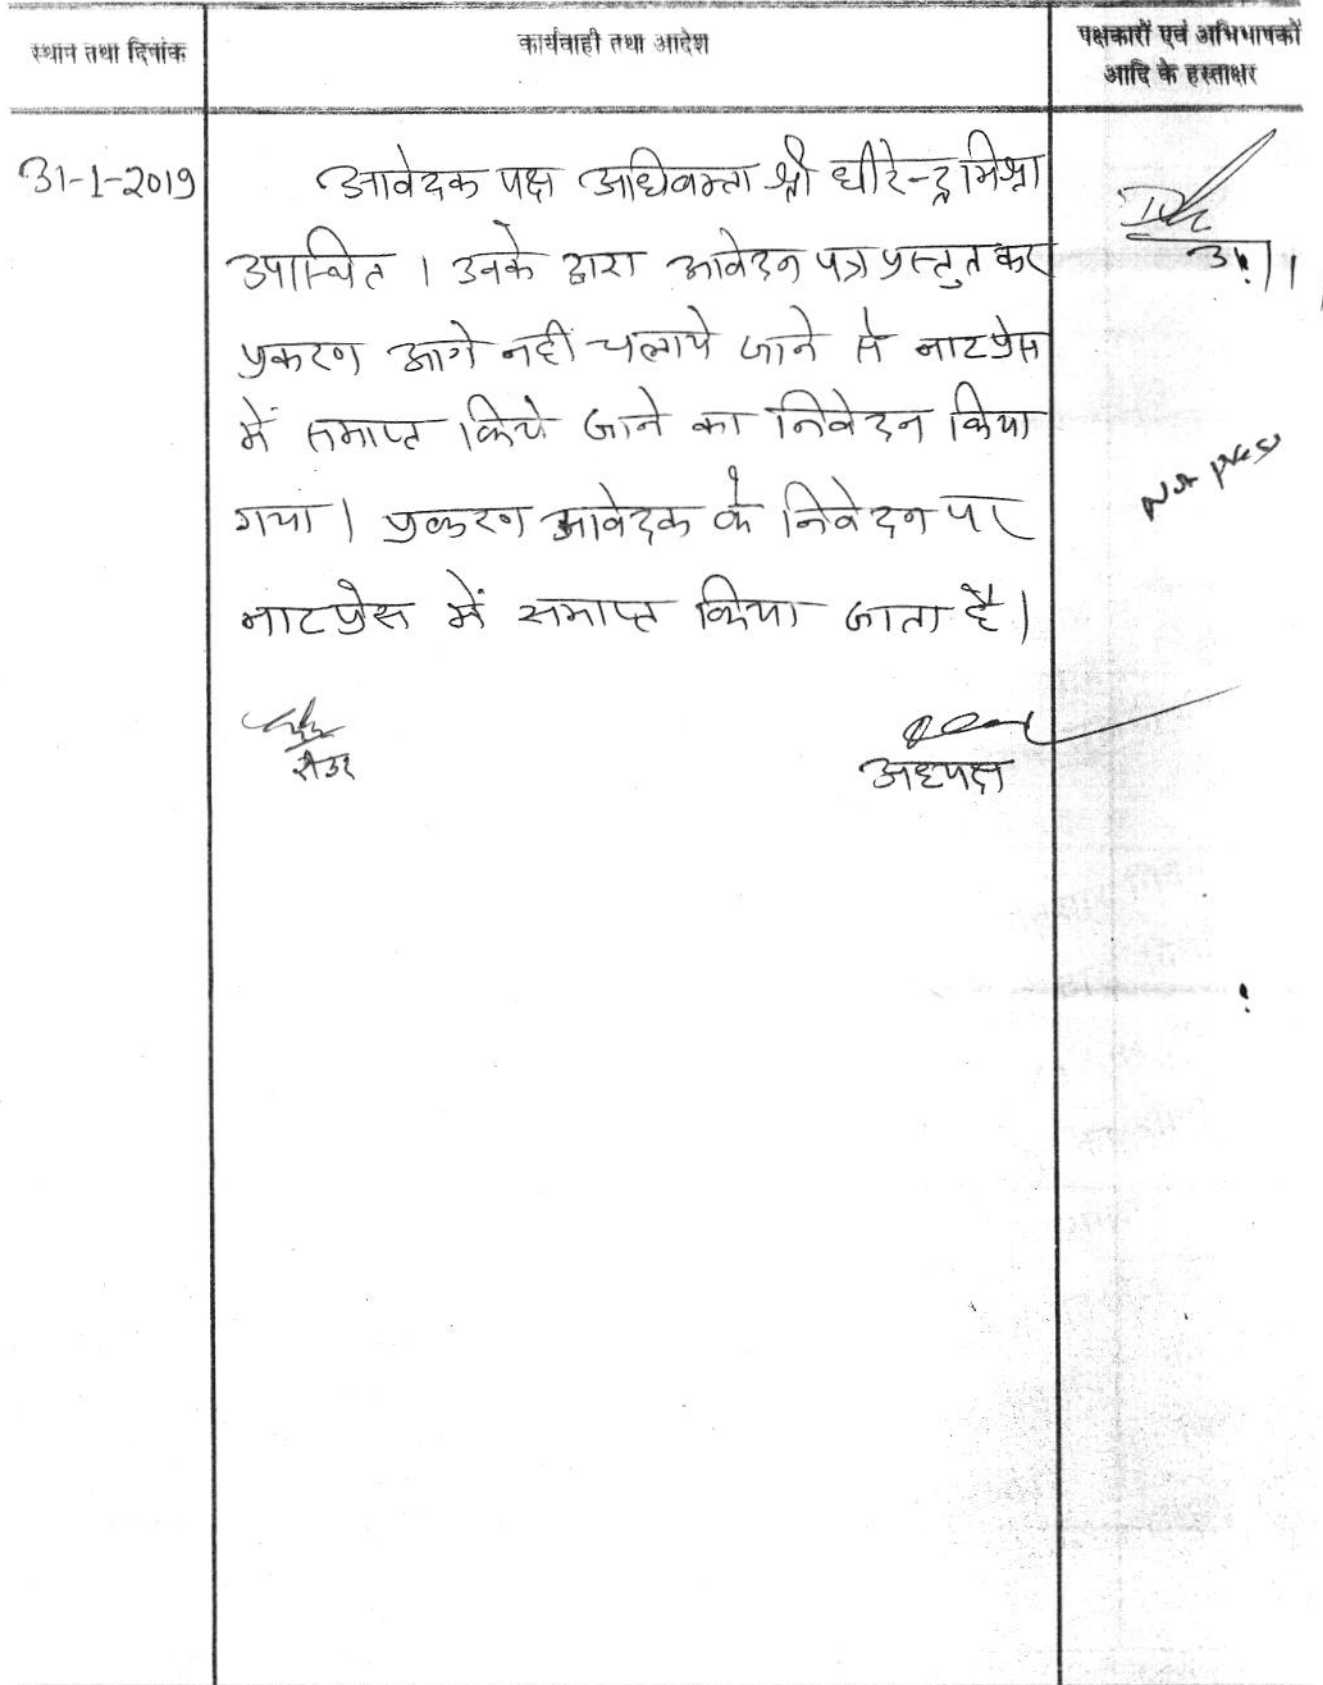 स्थान तथा दिनांक
कार्यवाही तथा आदेश
पक्षकारों एवं अभिभाषकों
आदि के हस्ताक्षर
31-1-2019
आवेदक पक्ष अधिवक्ता श्री धीरेन्द्र मिश्रा
उपस्थित । उनके द्वारा आवेदन पत्र प्रस्तुत कर
प्रकरण आगे नहीं चलाये जाने से नाटप्रेस
में समाप्त किये जाने का निवेदन किया
गया । प्रकरण आवेदक के निवेदन पर
नाटप्रेस में समाप्त किया जाता है ।
Not press
रीडर
अध्यक्ष